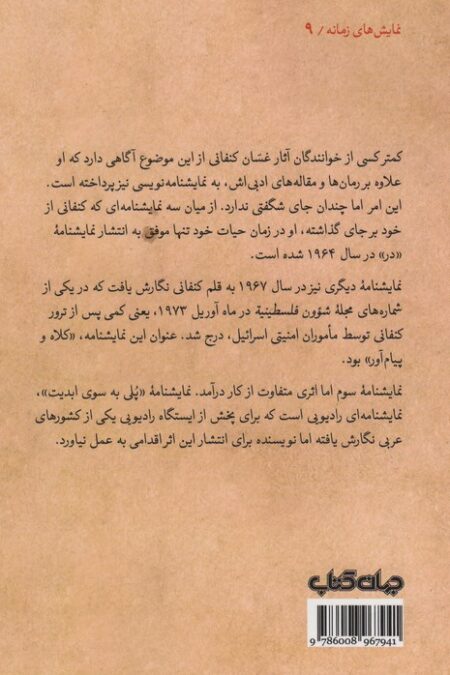 نمایش‌های زمانه / ۹
کمتر کسی از خوانندگان آثار غسّان کنفانی از این موضوع آگاهی دارد که او
علاوه بر رمان‌ها و مقاله‌های ادبی‌اش، به نمایشنامه‌نویسی نیز پرداخته است.
این امر اما چندان جای شگفتی ندارد. از میان سه نمایشنامه‌ای که کنفانی از
خود بر جای گذاشته، او در زمان حیات خود تنها موفق به انتشار نمایشنامهٔ
«در» در سال ۱۹۶۴ شده است.
نمایشنامهٔ دیگری نیز در سال ۱۹۶۷ به قلم کنفانی نگارش یافت که در یکی از
شماره‌های مجلهٔ شؤون فلسطینیة در ماه آوریل ۱۹۷۳، یعنی کمی پس از ترور
کنفانی توسط مأموران امنیتی اسرائیل، درج شد. عنوان این نمایشنامه، «کلاه و
پیام‌آور» بود.
نمایشنامهٔ سوم اما اثری متفاوت از کار درآمد. نمایشنامهٔ «پُلی به سوی ابدیت»،
نمایشنامه‌ای رادیویی است که برای پخش از ایستگاه رادیویی یکی از کشورهای
عربی نگارش یافته اما نویسنده برای انتشار این اثر اقدامی به عمل نیاورد.
جهان کتاب
9 786008 967941